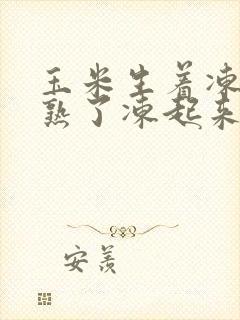 玉米生着冻
熟了冻起来
安羡